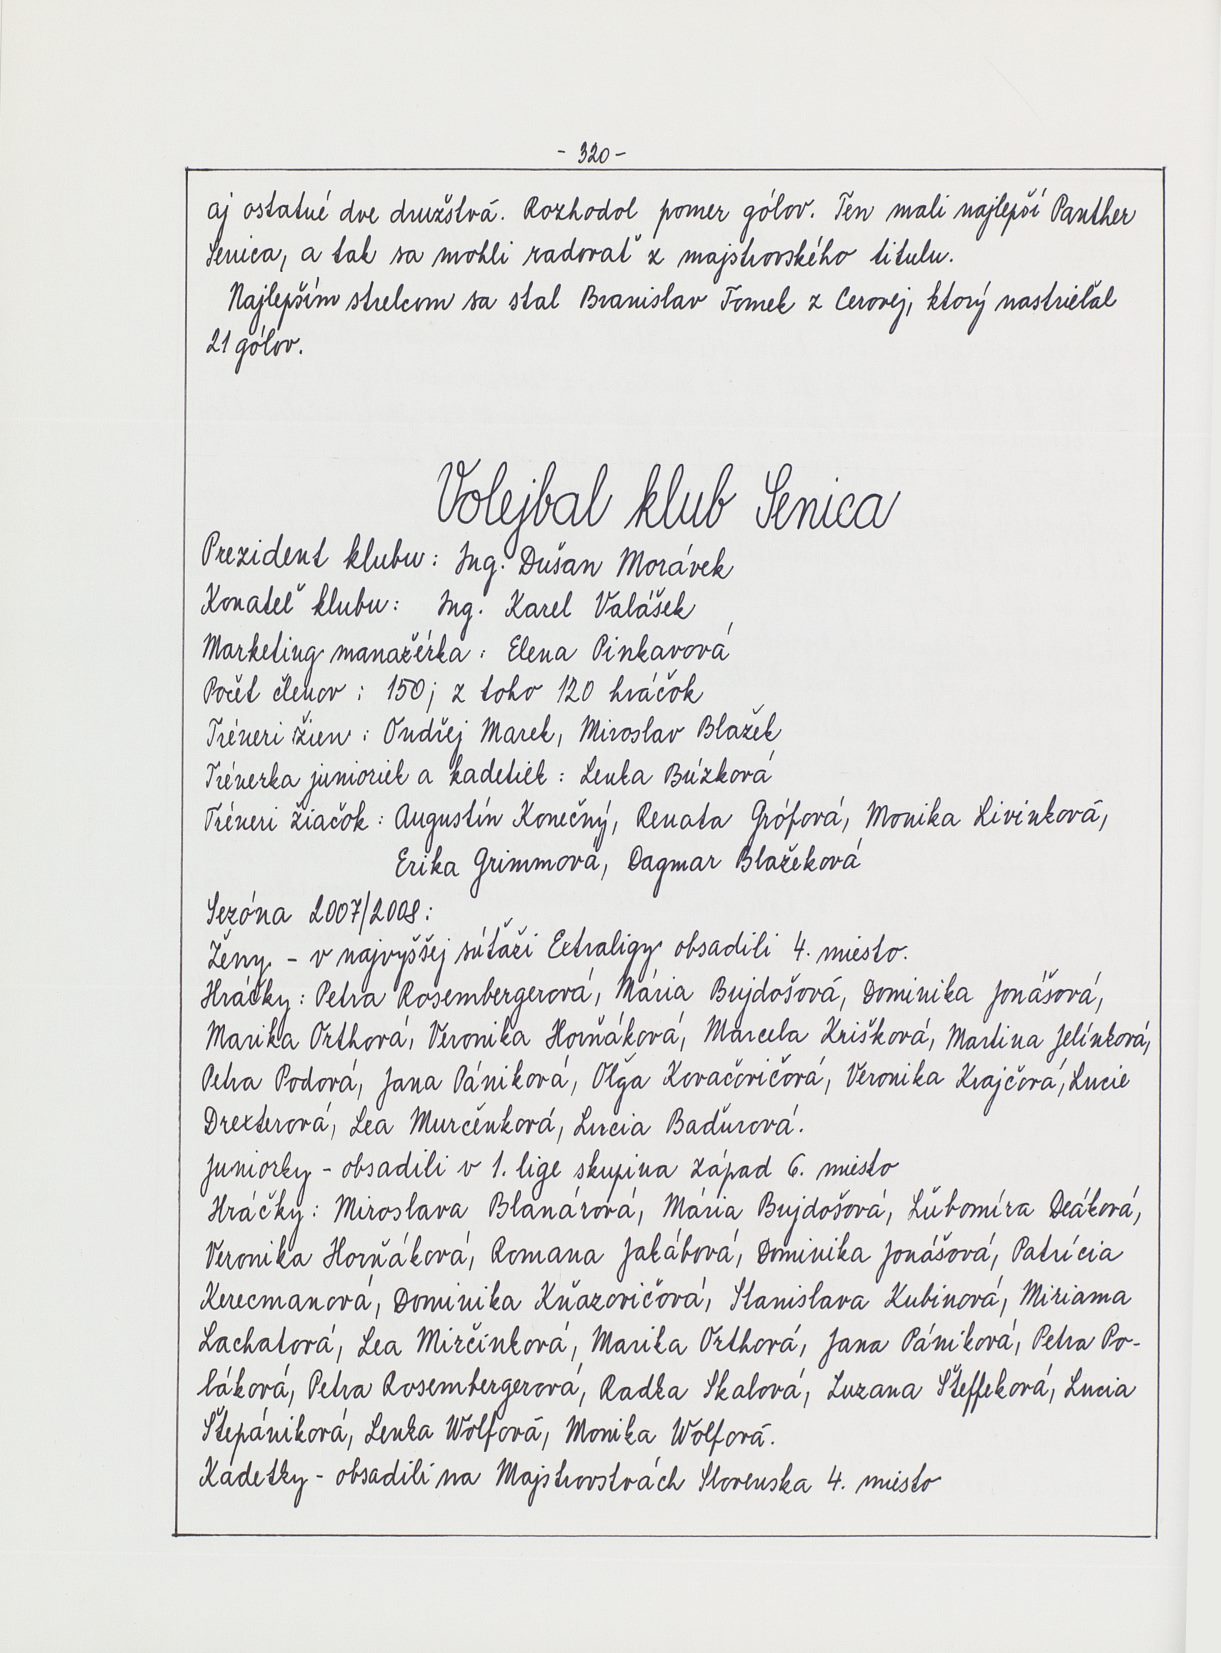 - 320 -
aj ostatné dve družstvá. Rozhodol pomer gólov. Ten mali najlepší Panther
Senica, a tak sa mohli radovať z majstrovského titulu.
Najlepším strelcom sa stal Branislav Tomek z Cerovej, ktorý nastrieľal
21 gólov.
Volejbal klub Senica
Prezident klubu: Ing. Dušan Morávek
Konateľ klubu: Ing. Karel Valášek
Marketing manažérka: Elena Pinkavová
Počet členov: 150; z toho 120 hráčok
Tréneri žien: Ondřej Marek, Miroslav Blažek
Trénerka junioriek a kadetiek: Lenka Búzková
Tréneri žiačok: Augustín Konečný, Renata Grófová, Monika Livinková,
Erika Grimmová, Dagmar Blažeková
Sezóna 2007/2008:
Ženy - v najvyššej súťaži Extraligy obsadili 4. miesto.
Hráčky: Petra Rosembergerová, Mária Bujdošová, Dominika Jonášová,
Marika Orthová, Veronika Horňáková, Marcela Krišková, Martina Jelínková,
Petra Podová, Jana Pániková, Oľga Kovačovičová, Veronika Krajčová, Lucie
Drexterová, Lea Murčenková, Lucia Baďurová.
Juniorky - obsadili v 1. lige skupina západ 6. miesto
Hráčky: Miroslava Blanárová, Mária Bujdošová, Ľubomíra Deáková,
Veronika Horňáková, Romana Jakábová, Dominika Jonášová, Patrícia
Kerecmanová, Dominika Kňazovičová, Stanislava Kubinová, Miriama
Lachatová, Lea Mirčinková, Marika Orthová, Jana Pániková, Petra Po-
láková, Petra Rosembergerová, Radka Skalová, Zuzana Šteffeková, Lucia
Štepániková, Lenka Wolfová, Monika Wolfová.
Kadetky - obsadili na Majstrovstvách Slovenska 4. miesto